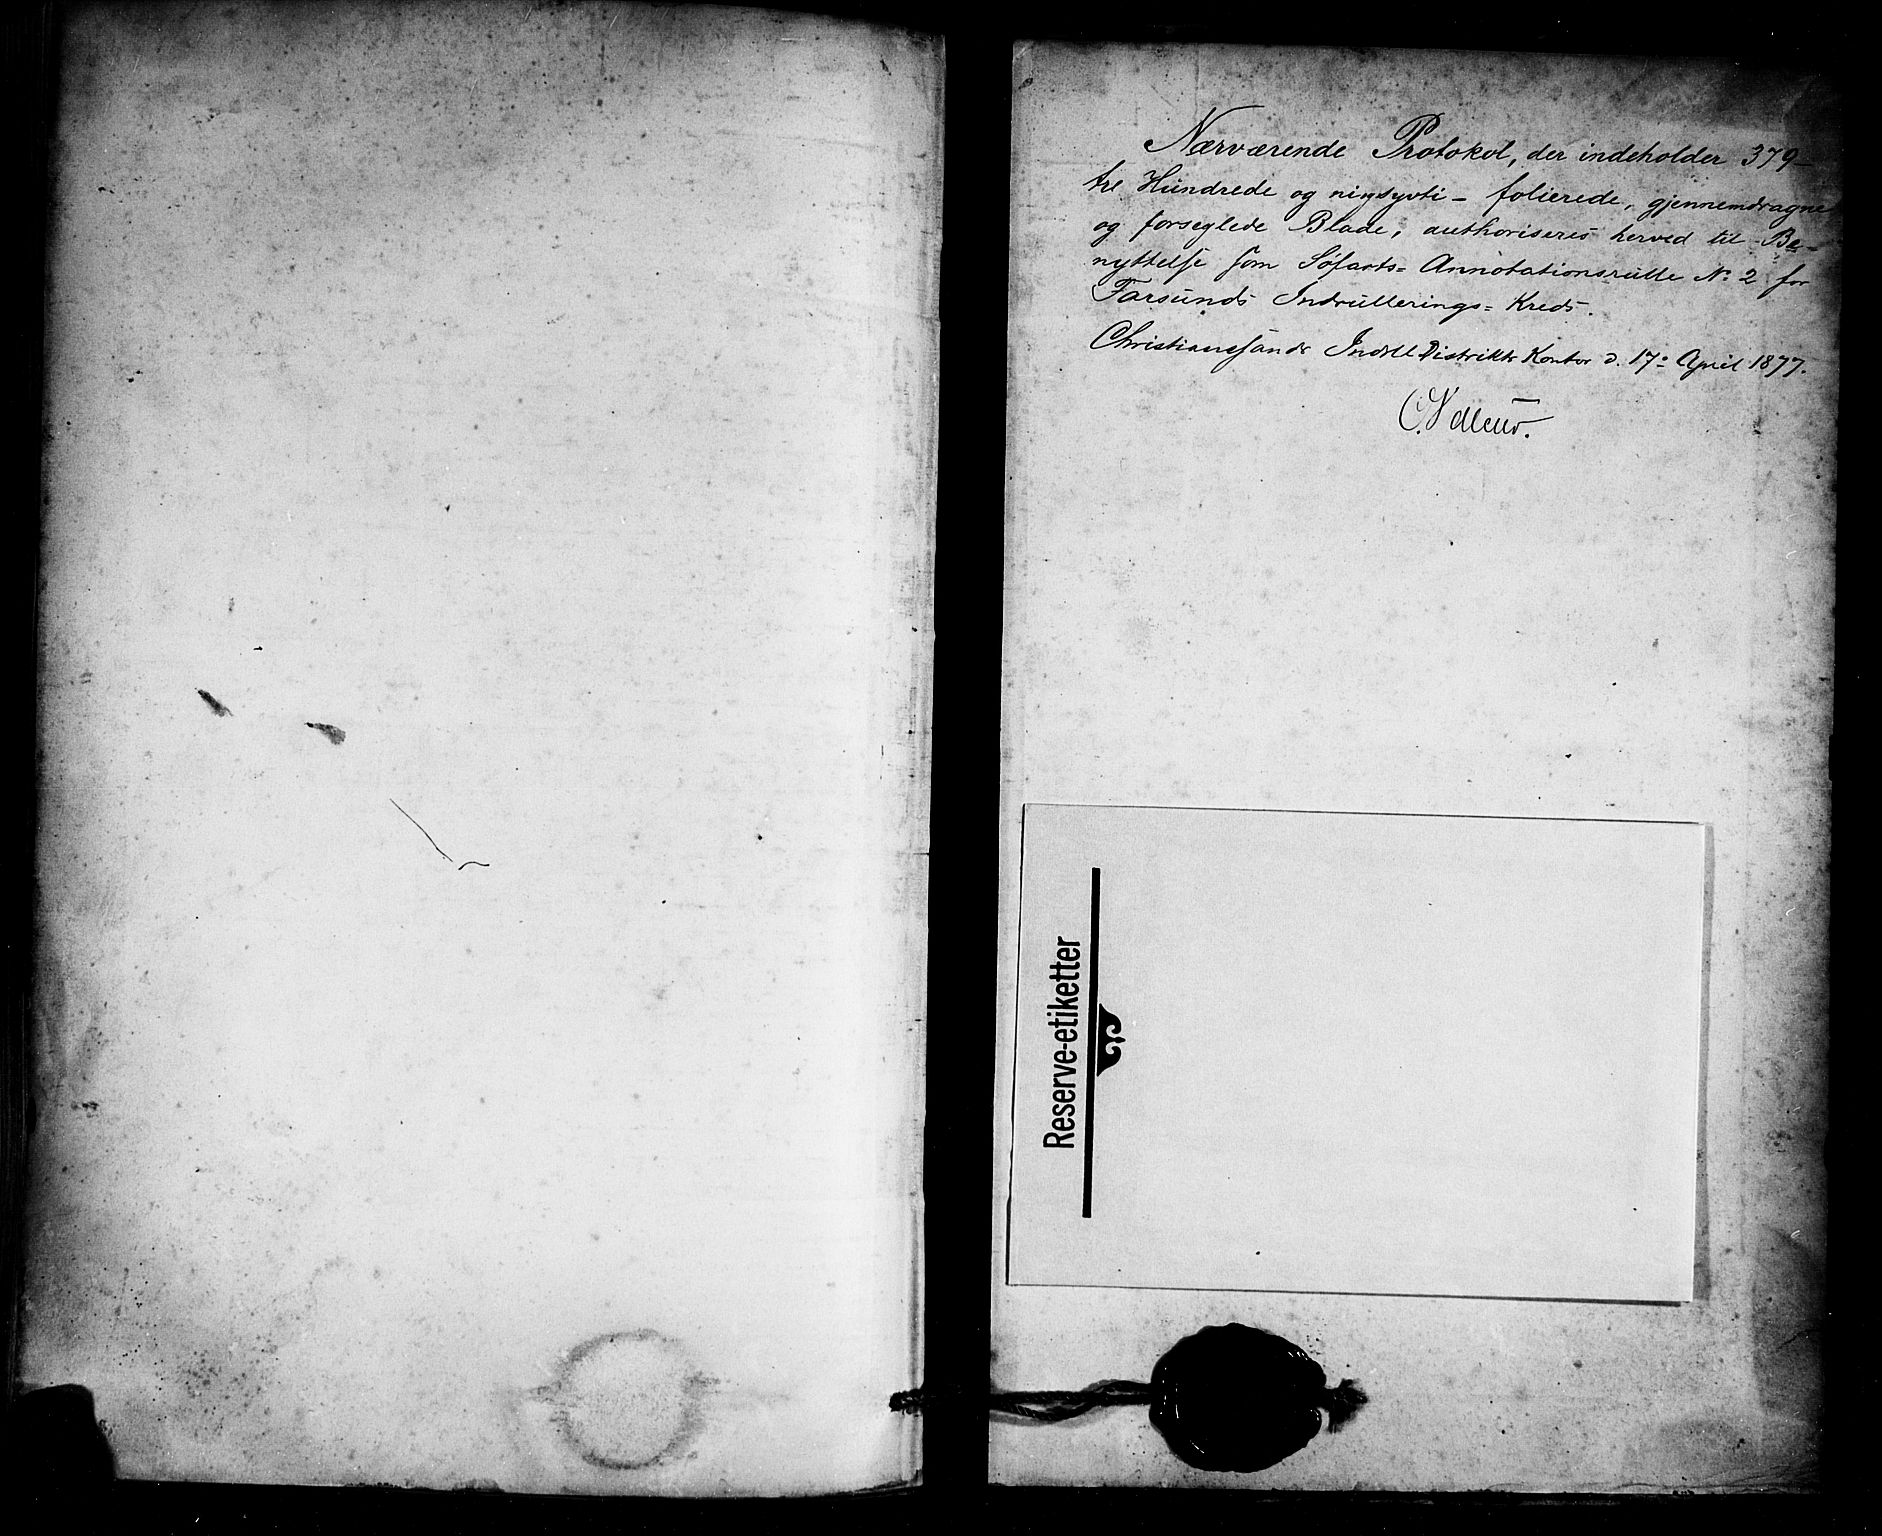 Nærværende Protokol, der indeholder 379 –
tre Hundrede og niogsyvti – folierede, gjennemdragne
og forseglede Blade, authoriseres herved til Be-
nyttelse som Søfarts= Annotationsrulle No 2 for
Farsunds Indrullerings= Kreds.
Christianssands Indrll Distrikts Kontor d. 17. April 1877.
Reserve-etiketter